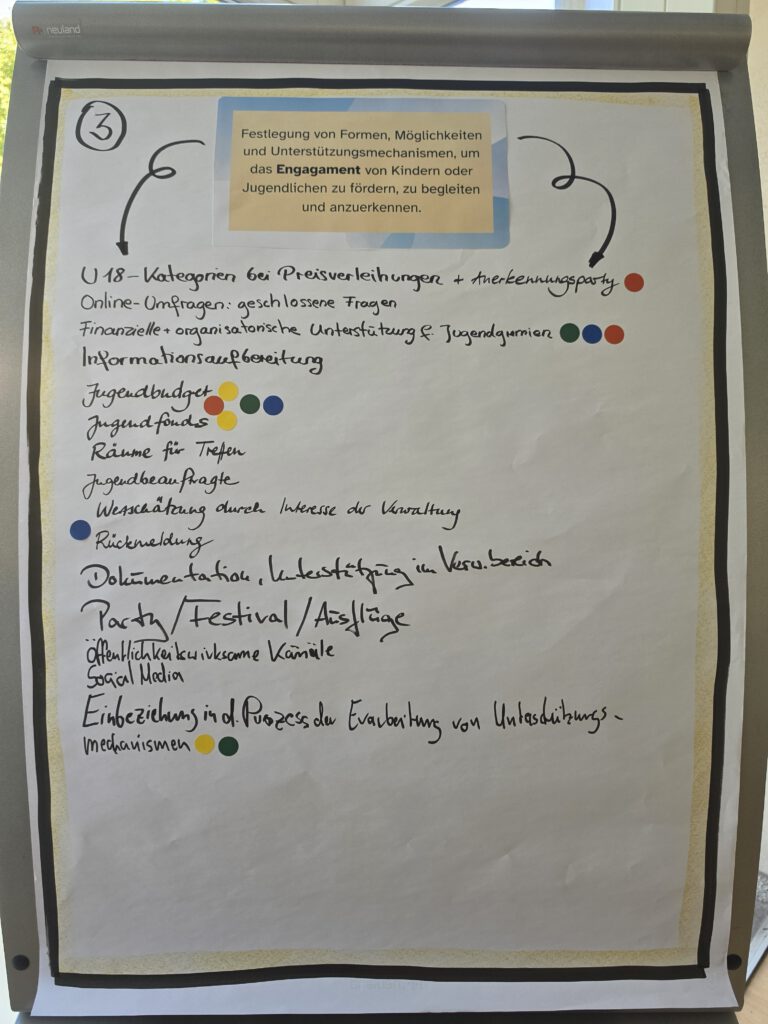 neuland
3
Festlegung von Formen, Möglichkeiten
und Unterstützungsmechanismen, um
das Engagament von Kindern oder
Jugendlichen zu fördern, zu begleiten
und anzuerkennen.
U18-Kategorien bei Preisverleihungen + Anerkennungsparty
Online-Umfragen: geschlossene Fragen
Finanzielle + organisatorische Unterstützung f. Jugendgremien
Informationsaufbereitung
Jugendbudget
Jugendfonds
Räume für Treffen
Jugendbeauftragte
Wertschätzung durch Interesse der Verwaltung
Rückmeldung
Dokumentation, Unterstützung im Verw.bereich
Party/Festival/Ausflüge
öffentlichkeitswirksame Kanäle
Social Media
Einbeziehung in d. Prozess der Erarbeitung von Unterstützungs-
mechanismen